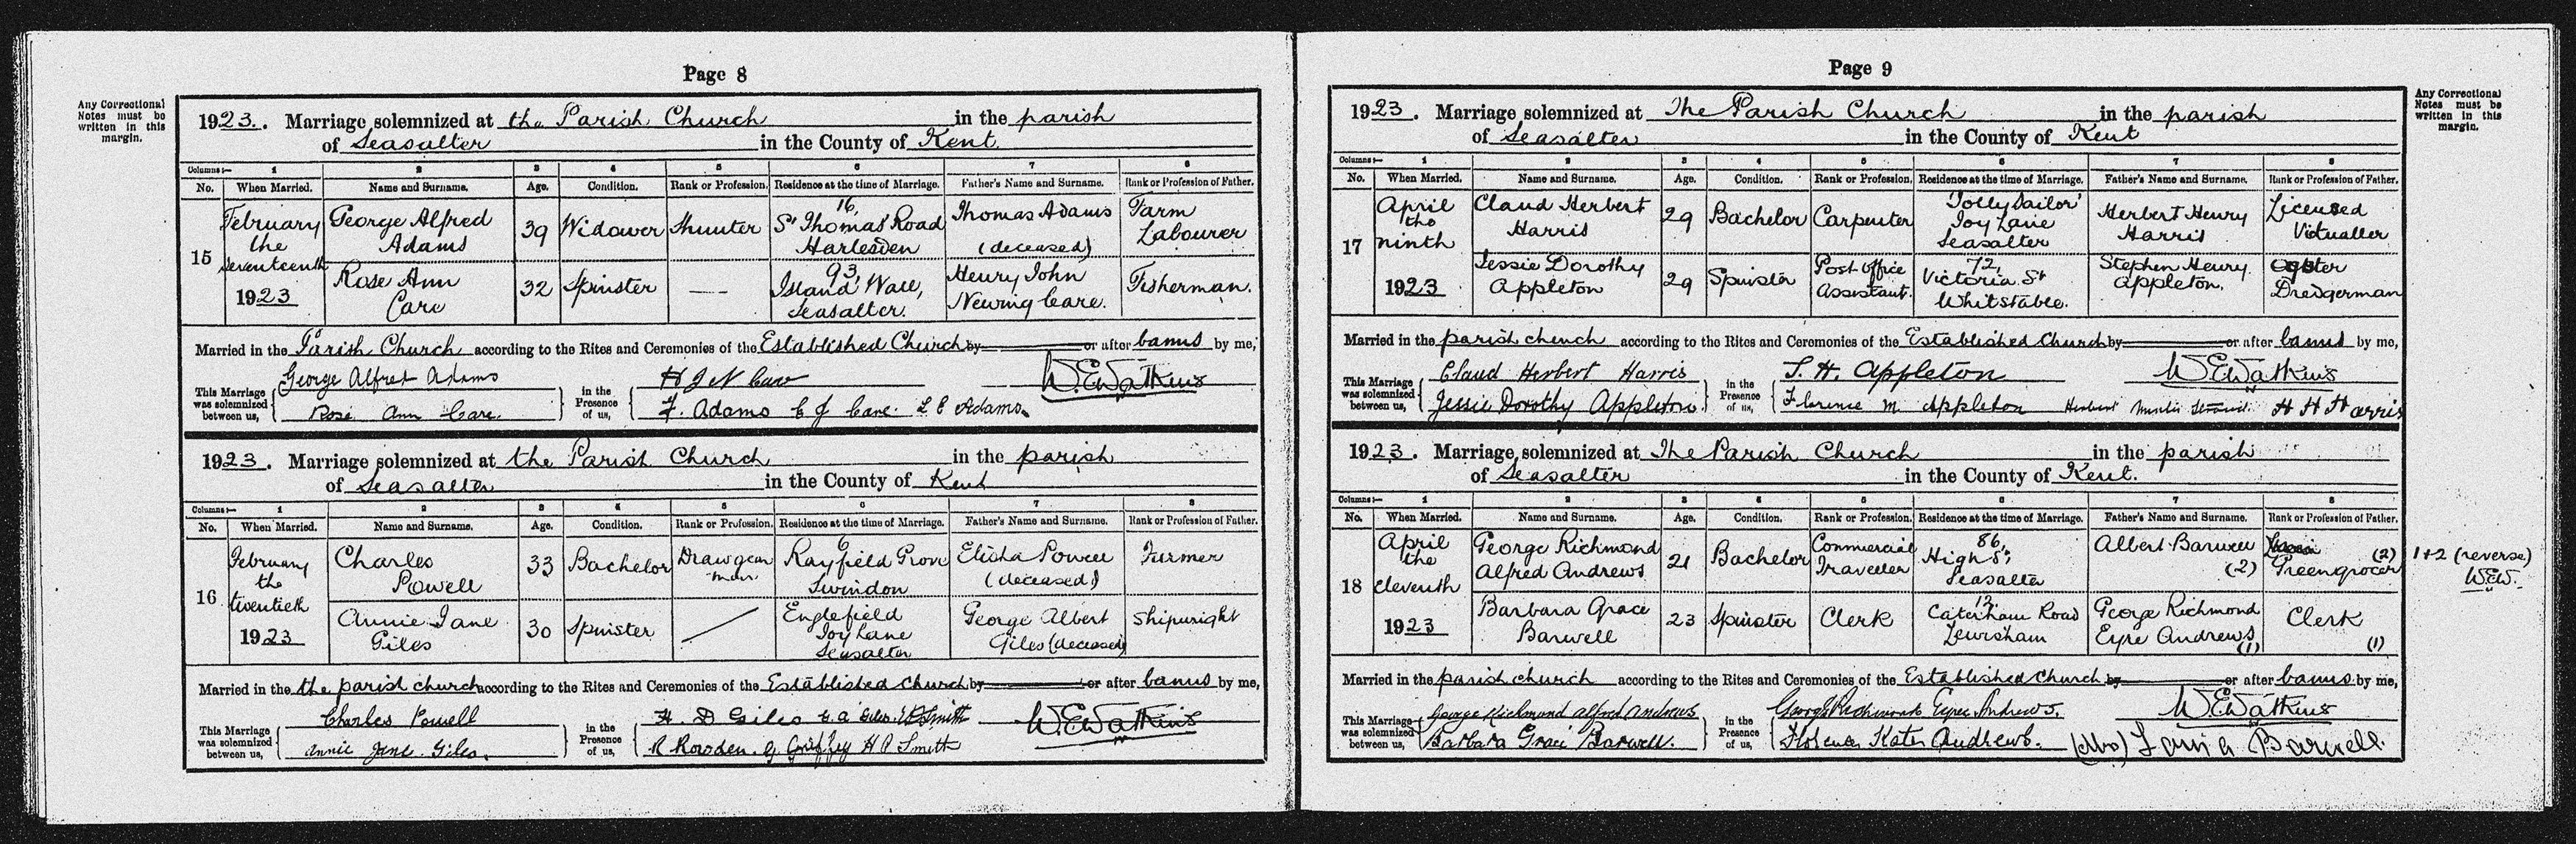 Page 8
Any Correctional
Notes must be
written in this
margin.
1923. Marriage solemnized at the Parish Church in the parish
of Seasalter in the County of Kent
Columns:— 1 2 3 4 5 6 7 8
No. When Married. Name and Surname. Age. Condition. Rank or Profession. Residence at the time of Marriage. Father's Name and Surname. Rank or Profession of Father.
15 February the seventeenth 1923
George Alfred Adams 39 Widower Shunter 16, St Thomas' Road Harlesden Thomas Adams (deceased) Farm Labourer
Rose Ann Care 32 Spinster — 93, Island Wall, Seasalter. Henry John Newing Care. Fisherman.
Married in the Parish Church according to the Rites and Ceremonies of the Established Church by or after banns by me,
This Marriage was solemnized between us, George Alfred Adams
Rose Ann Care.
in the Presence of us, H J N Care
F. Adams C J Care. L E Adams.
W.E.Watkins
1923. Marriage solemnized at the Parish Church in the parish
of Seasalter in the County of Kent
Columns:— 1 2 3 4 5 6 7 8
No. When Married. Name and Surname. Age. Condition. Rank or Profession. Residence at the time of Marriage. Father's Name and Surname. Rank or Profession of Father.
16 February the twentieth 1923
Charles Powell 33 Bachelor 6 Rayfield Grove Swindon Elisha Powell (deceased) Farmer
Annie Jane Giles 30 Spinster Englefield Joy Lane Seasalter George Albert Giles (deceased) Shipwright
Married in the the parish church according to the Rites and Ceremonies of the Established Church by or after banns by me,
This Marriage was solemnized between us, Charles Powell
Annie Jane Giles.
in the Presence of us, H. D Giles E. A Giles. Smith
R Rowden. G Godfrey H A Smith
W.E.Watkins
Page 9
Any Correctional
Notes must be
written in this
margin.
1923. Marriage solemnized at The Parish Church in the parish
of Seasalter in the County of Kent
Columns:— 1 2 3 4 5 6 7 8
No. When Married. Name and Surname. Age. Condition. Rank or Profession. Residence at the time of Marriage. Father's Name and Surname. Rank or Profession of Father.
17 April the ninth 1923
Claud Herbert Harris 29 Bachelor Carpenter 'Jolly Sailor' Joy Lane Seasalter Herbert Henry Harris Licensed Victualler
Jessie Dorothy Appleton 29 Spinster Post Office Assistant. 72, Victoria St Whitstable. Stephen Henry Appleton. Oyster Dredgerman
Married in the parish church according to the Rites and Ceremonies of the Established Church by or after banns by me,
This Marriage was solemnized between us, Claud Herbert Harris
Jessie Dorothy Appleton.
in the Presence of us, S. H. Appleton
Florence M Appleton Herbert H H Harris
W.E.Watkins
1923. Marriage solemnized at The Parish Church in the parish
of Seasalter in the County of Kent.
Columns:— 1 2 3 4 5 6 7 8
No. When Married. Name and Surname. Age. Condition. Rank or Profession. Residence at the time of Marriage. Father's Name and Surname. Rank or Profession of Father.
18 April the eleventh 1923
George Richmond Alfred Andrews 21 Bachelor Commercial Traveller 86, High St, Seasalter Albert Barwell (2) Greengrocer (2)
Barbara Grace Barwell 23 Spinster Clerk 12, Caterham Road Lewisham George Richmond Eyre Andrews (1) Clerk (1)
1+2 (reverse)
W.E.W.
Married in the parish church according to the Rites and Ceremonies of the Established Church by or after banns by me,
This Marriage was solemnized between us, George Richmond Alfred Andrews
Barbara Grace Barwell.
in the Presence of us, George Richmond Eyre Andrews.
Florence Kate Andrews. Barwell.
W.E.Watkins